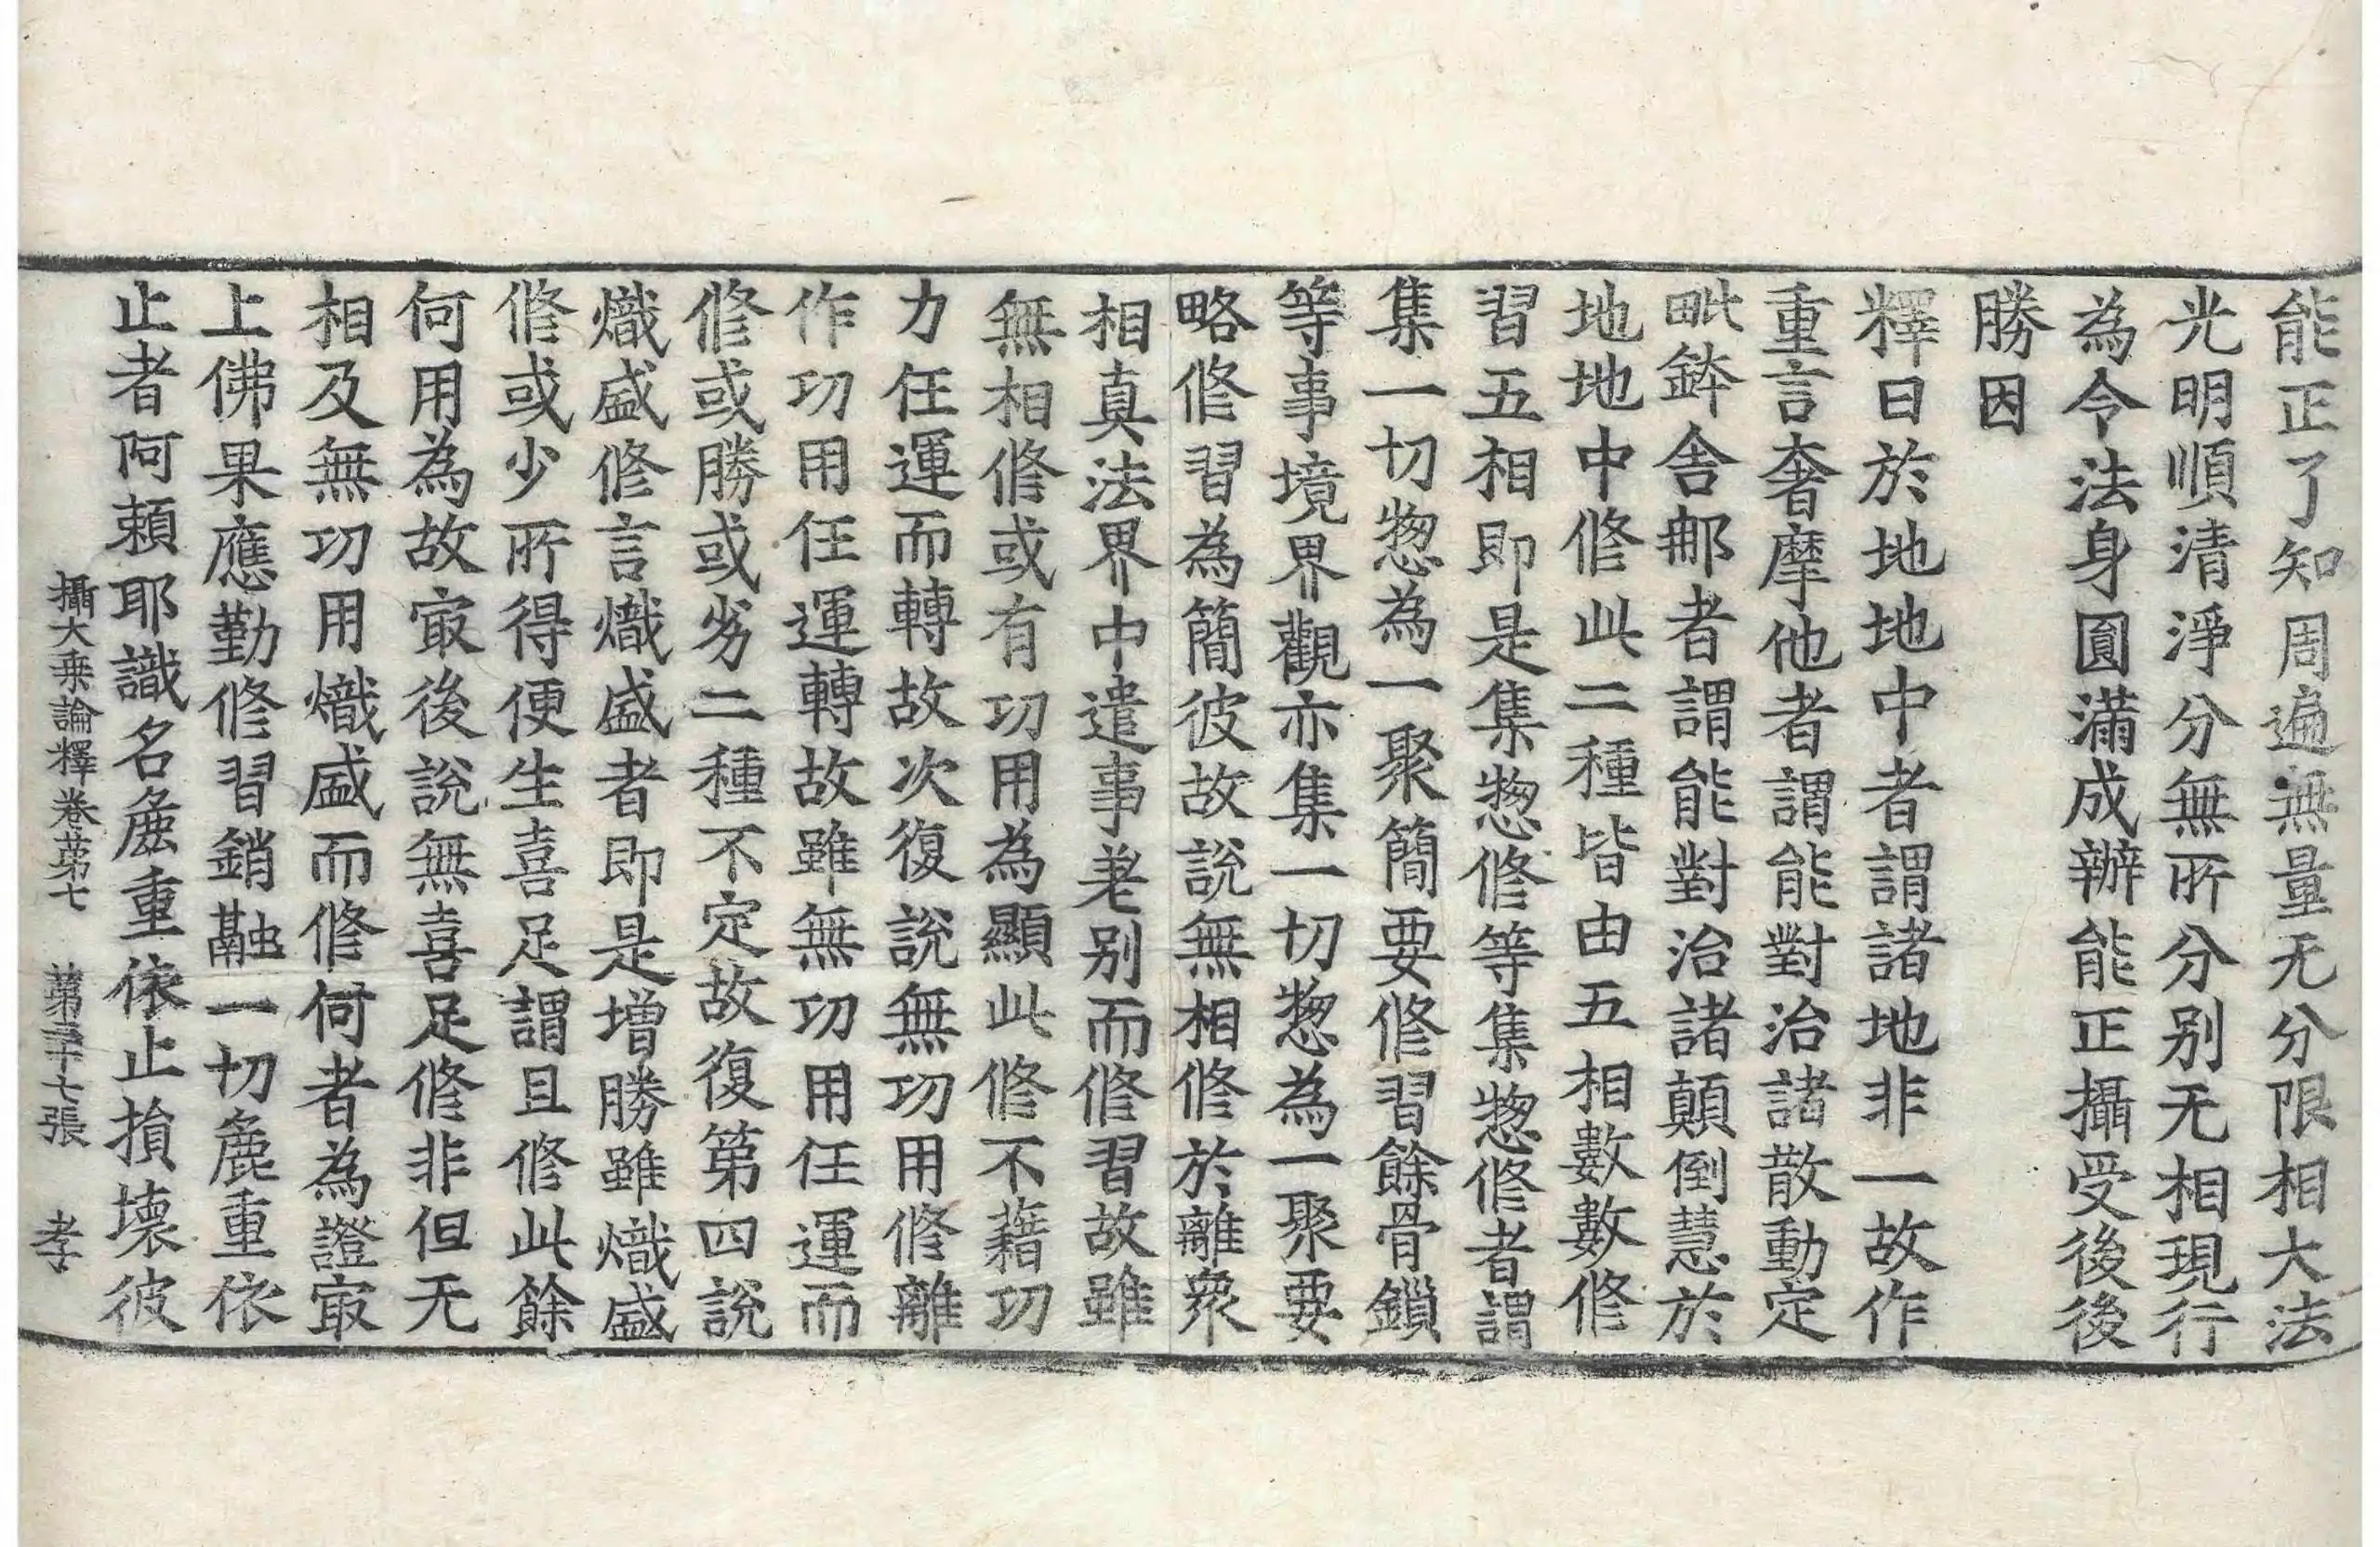 能正了知周遍無量无分限相大法
光明順清淨分無所分別无相現行
為令法身圓滿成辦能正攝受後後
勝因
釋曰於地地中者謂諸地非一故作
重言奢摩他者謂能對治諸散動定
毗鉢舍那者謂能對治諸顛倒慧於
地地中修此二種皆由五相數數修
習五相即是集惣修等集惣修者謂
集一切惣為一聚簡要修習餘骨鎖
等事境界觀亦集一切惣為一聚要
略修習為簡彼故說無相修於離衆
相真法界中遣事差别而修習故雖
無相修或有功用為顯此修不藉功
力任運而轉故次復說無功用修離
作功用任運轉故雖無功用任運而
修或勝或劣二種不定故復第四說
熾盛修言熾盛者即是增勝雖熾盛
修或少所得便生喜足謂且修此餘
何用為故㝡後說無喜足修非但无
相及無功用熾盛而修何者為證㝡
上佛果應勤修習銷融一切麁重依
止者阿賴耶識名麁重依止損壞彼
攝大乗論釋卷苐七 苐三十七張 孝